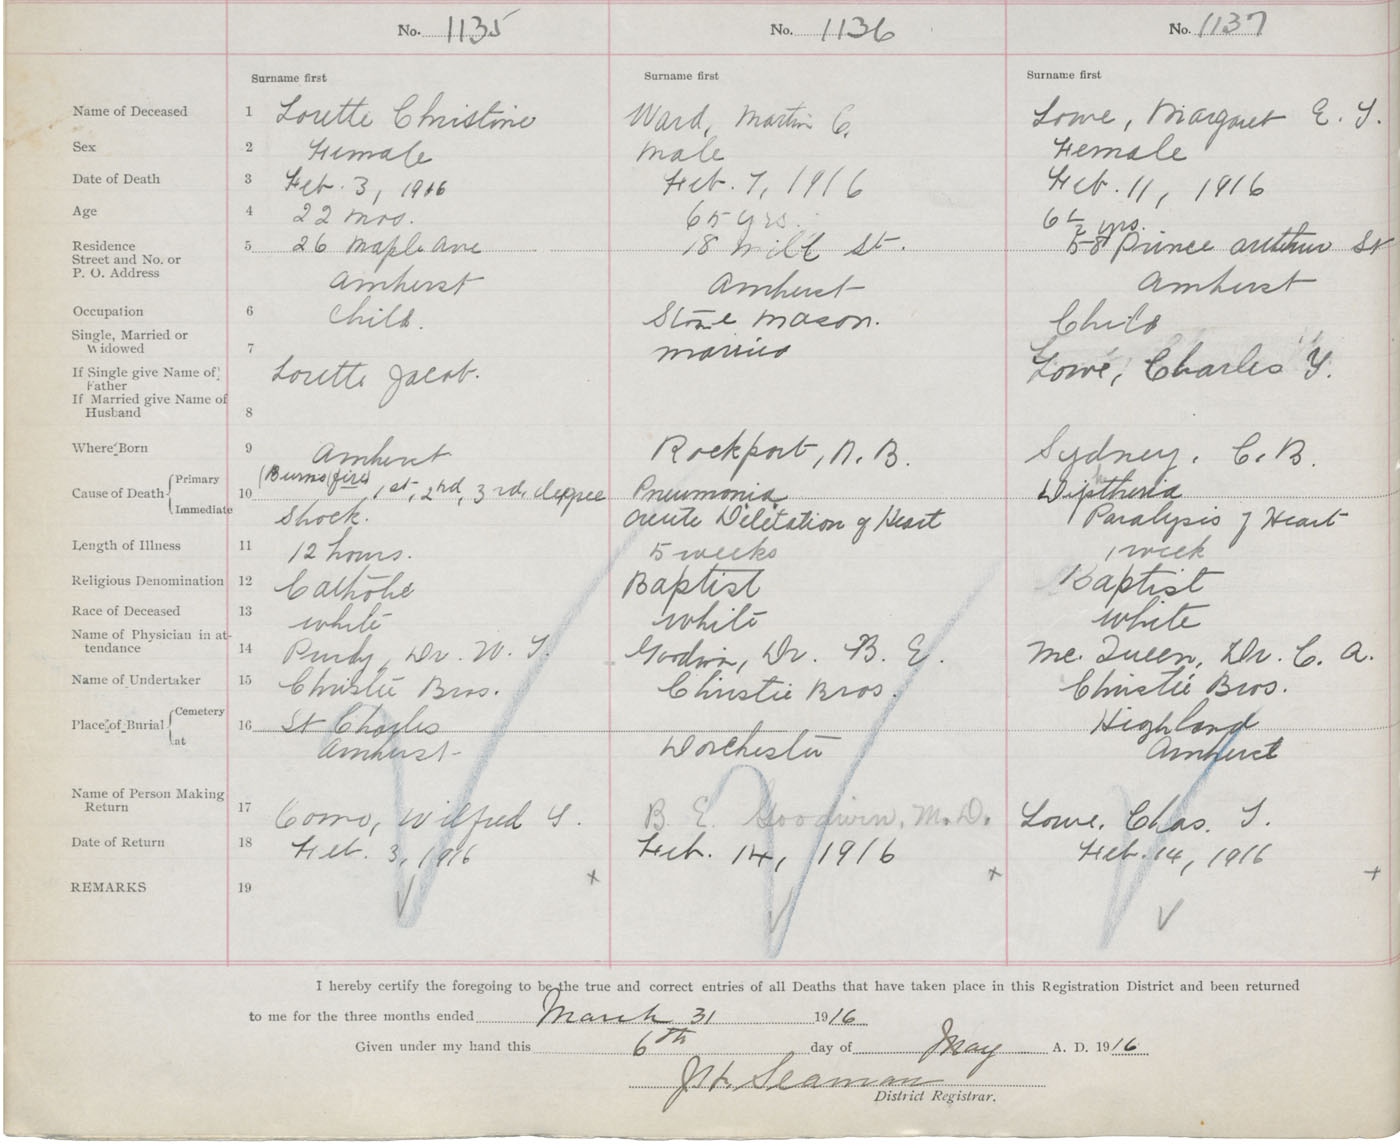 No. 1135 No. 1136 No. 1137
Surname first Surname first Surname first
Name of Deceased 1 Lorette Christine Ward, Martin C. Lowe, Margaret E. Y.
Sex 2 Female Male Female
Date of Death 3 Feb. 3, 1916 Feb. 7, 1916 Feb. 11, 1916
Age 4 22 mos. 65 yrs. yrs.
Residence 5 26 Maple Ave 18 Mill St. 58 Prince Arthur St
Street and No. or
P. O. Address Amherst Amherst Amherst
Occupation 6 Child. Stone Mason. Child
Single, Married or
Widowed 7 married
If Single give Name of Father Lorette Jacob. Lowe, Charles Y.
If Married give Name of
Husband 8
Where Born 9 Amherst Rockport, N. B. Sydney, C. B.
Cause of Death Primary 10 (Burns (fire) 1st, 2nd, 3rd, degree Pneumonia Diptheria
Immediate Shock. Acute Diletation of Heart Paralysis of Heart
Length of Illness 11 12 hours. 5 weeks 1 week
Religious Denomination 12 Catholic Baptist Baptist
Race of Deceased 13 white white white
Name of Physician in at-
tendance 14 Purdy, Dr. W. T. Goodwin, Dr. B. E. Mc. Queen, Dr. C. A.
Name of Undertaker 15 Christie Bros. Christie Bros. Christie Bros.
Place of Burial Cemetery 16 St Charles Highland
at Amherst Dorchester Amherst
Name of Person Making
Return 17 Como, Wilfred Y. B. E. Goodwin, M.D. Lowe, Chas. Y.
Date of Return 18 Feb. 3, 1916 Feb. 14, 1916 Feb. 14, 1916
REMARKS 19
I hereby certify the foregoing to be the true and correct entries of all Deaths that have taken place in this Registration District and been returned
to me for the three months ended March 31 1916
Given under my hand this 6th day of May A. D. 1916
Seaman
District Registrar.